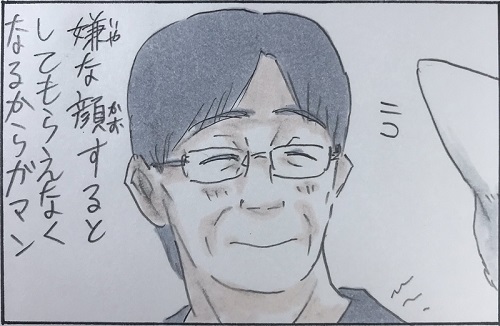 嫌な顔すると
してもらえなく
なるからガマン
いや
かお
ニコ